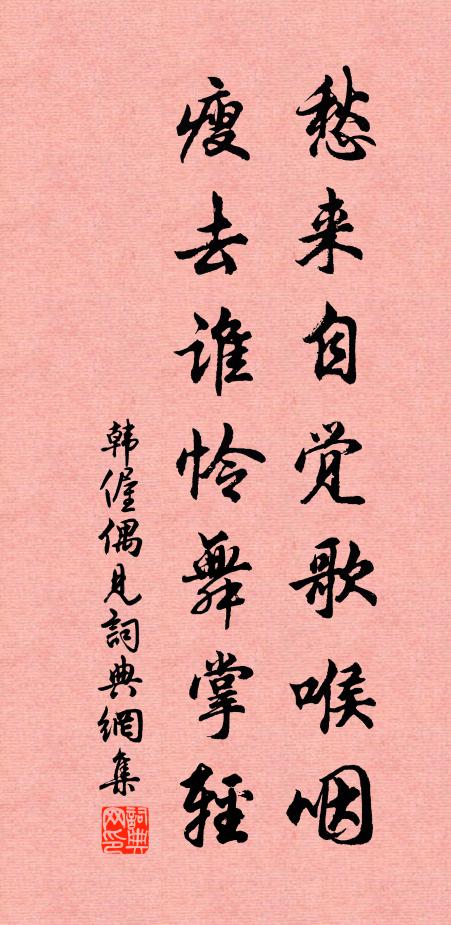 愁来自觉歌喉咽
瘦去谁怜舞掌轻
韩偓偶见词典網集
詞典网印